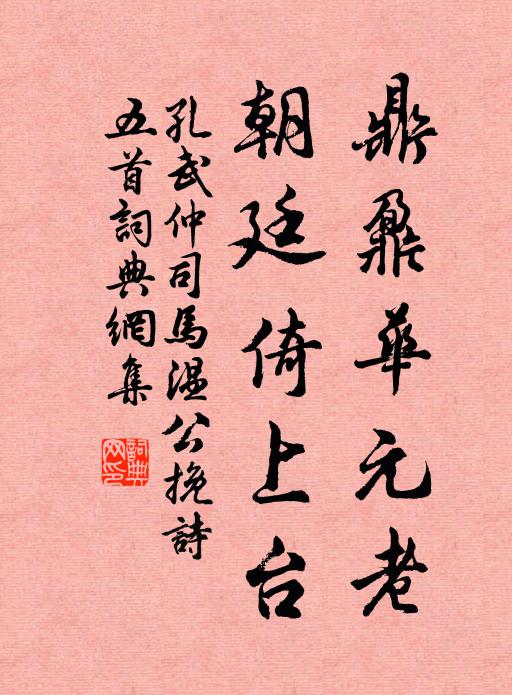 鼎鼐華元老
朝廷倚上台
孔武仲司馬溫公挽詩
五首詞典網集
詞典網印